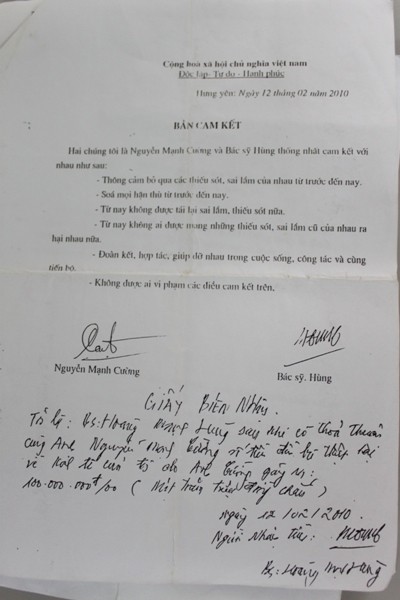 Cộng hoà xã hội chủ nghĩa việt nam
Độc lập- Tự do - Hạnh phúc
Hưng yên: Ngày 12 tháng 02 năm 2010
BẢN CAM KẾT
Hai chúng tôi là Nguyễn Mạnh Cường và Bác sỹ Hùng thống nhất cam kết với
nhau như sau:
- Thông cảm bỏ qua các thiếu sót, sai lầm của nhau từ trước đến nay.
- Soá mọi hận thù từ trước đến nay.
- Từ nay không được tái lại sai lầm, thiếu sót nữa.
- Từ nay không ai được mang những thiếu sót, sai lầm cũ của nhau ra
hại nhau nữa.
- Đoàn kết, hợp tác, giúp đỡ nhau trong cuộc sống, công tác và cùng
tiến bộ.
- Không được ai vi phạm các điều cam kết trên.
Nguyễn Mạnh Cường
Bác sỹ. Hùng
GIẤY BIÊN NHẬN.
Tôi là: Bs: Hoàng Mạnh Hùng sau khi có thoả thuận
cùng Anh Nguyễn Mạnh Cường
về do Anh Cường gây ra:
100.000.000đ/00 (Một trăm triệu đồng chẵn)
ngày 12/02/2010.
Người nhận tiền:
Bs: Hoàng Mạnh Hùng